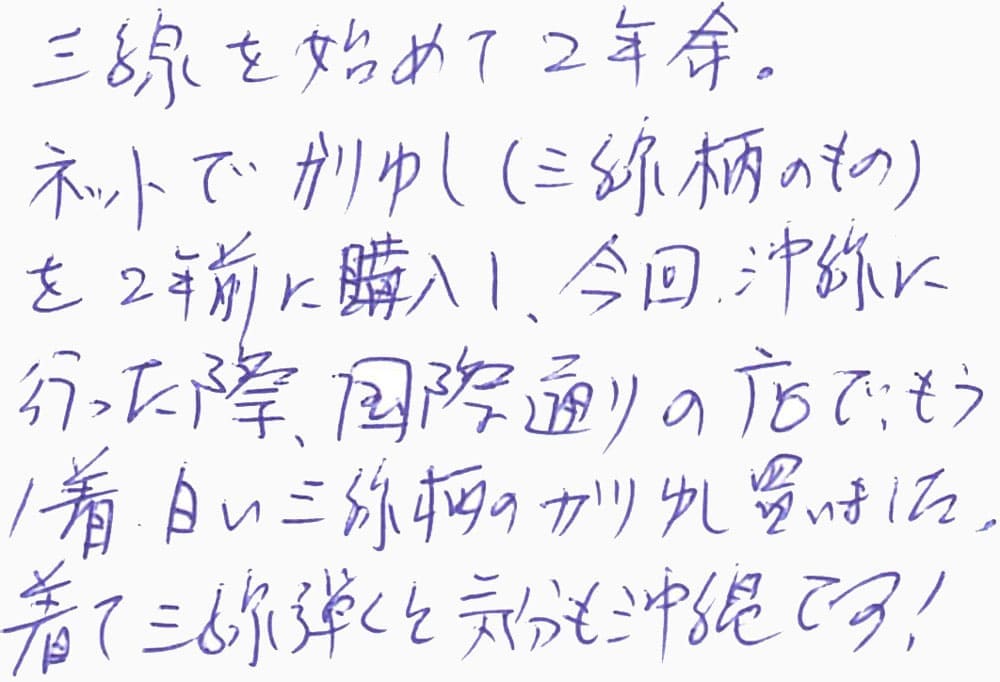 三線を始めて2年余。
ネットでかりゆし(三線柄のもの)
を2年前に購入し、今回、沖縄に
行った際、国際通りの店で、もう
1着、白い三線柄のかりゆし買いました。
着て三線弾くと気分も沖縄です!